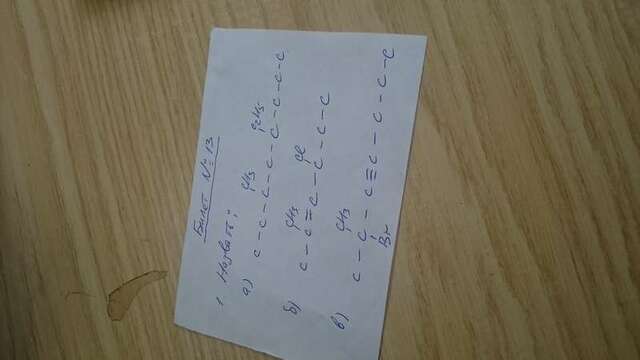 Билет № 13
1. Назвать:
а)
CH₃ C₂H₅
C - C - C - C - C - C - C - C
б)
CH₃ Cl
C - C = C - C - C - C
в)
CH₃
C - C - C ≡ C - C - C - C
Br